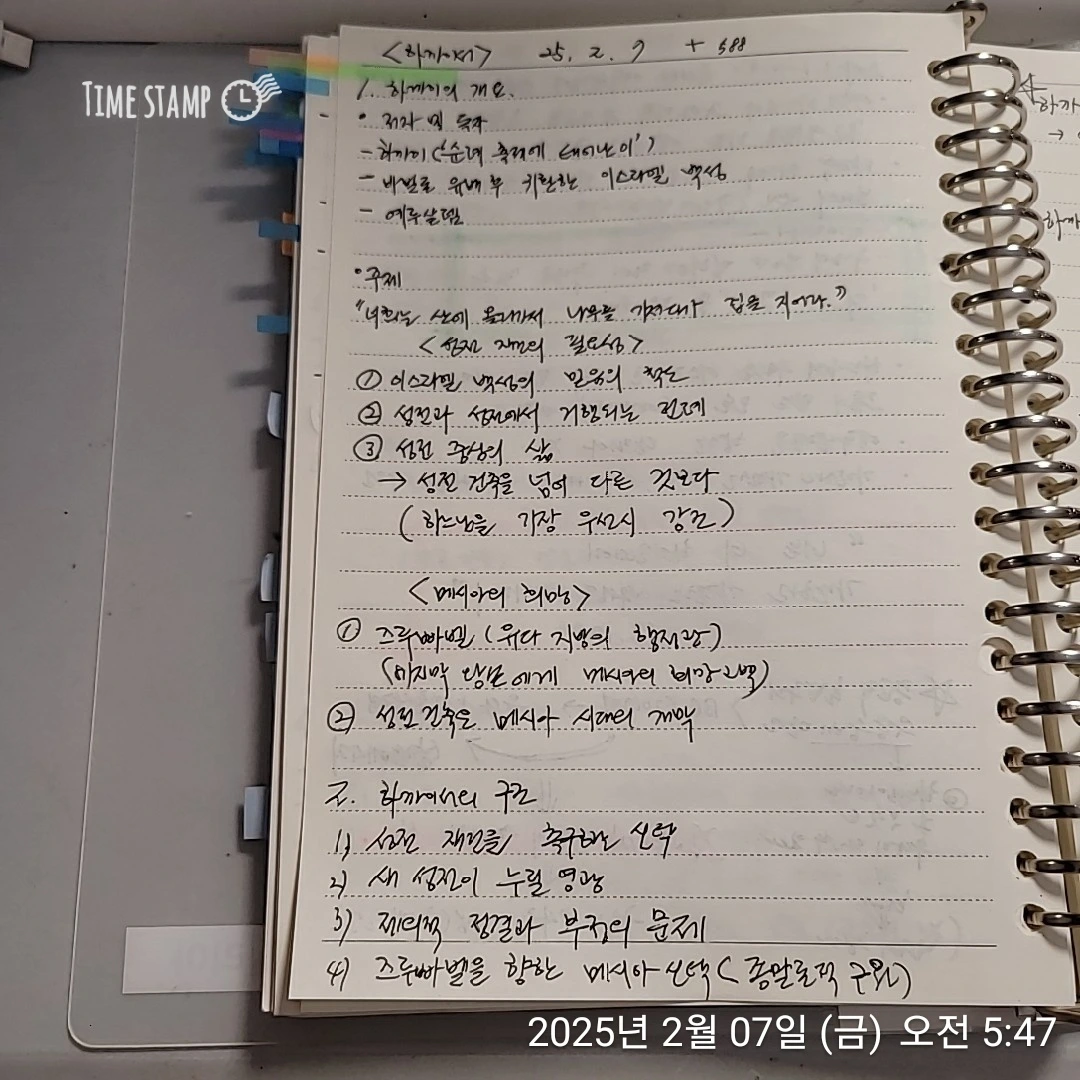 TIME STAMP
<하까이서> 25. 2. 7 + 588
1. 하까이의 개요.
• 저자 및 독자
- 하까이('순례 축제에 태어난 이')
- 바빌론 유배 후 귀환한 이스라엘 백성
- 예루살렘
• 주제
"너희는 산에 올라가서 나무를 가져다가 집을 지어라."
<성전 재건의 필요성>
① 이스라엘 백성의 믿음의 척도
② 성전과 성전에서 거행되는 전례
③ 성전 중심의 삶
→ 성전 건축을 넘어 다른 것보다
(하느님을 가장 우선시 강조)
<메시아의 희망>
① 즈루빠벨 (유다 지방의 행정관)
(마지막 메시아의 희망)
② 성전건축은 메시아 시대의 개막
2. 하까이서의 구조
1) 성전 재건을 촉구하는 신탁
2) 새 성전이 누릴 영광
3) 제의적 정결과 부정의 문제
4) 즈루빠벨을 향한 메시아 신탁(종말론적 구원)
하까
→
하까
2025년 2월 07일 (금) 오전 5:47